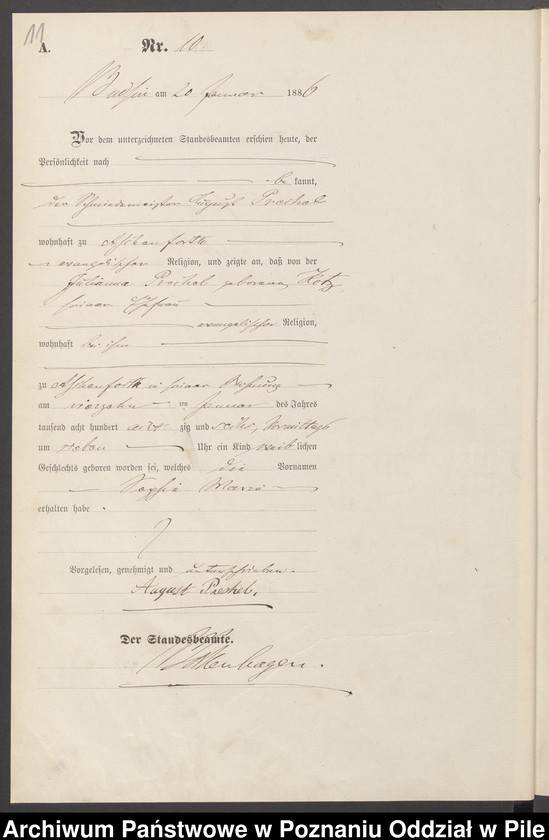 11
A. Nr. 10.
Budsin am 20 Januar 1886
Vor dem unterzeichneten Standesbeamten erschien heute, der
Persönlichkeit nach
be kannt,
der Schmiedemeister August Preehel
wohnhaft zu
evangelischer Religion, und zeigte an, daß von der
Julianna Preehel geborenen Hotz
seiner Ehefrau
evangelischer Religion,
wohnhaft bei ihm
zu in seiner Wohnung
am vierzehn ten Januar des Jahres
tausend acht hundert acht zig und sechs, Vormittags
um sieben Uhr ein Kind weib lichen
Geschlechts geboren worden sei, welches die Vornamen
Sophie Marie
erhalten habe.
Vorgelesen, genehmigt und unterschrieben.
August Preehel.
Der Standesbeamte.
Archiwum Państwowe w Poznaniu Oddział w Pile